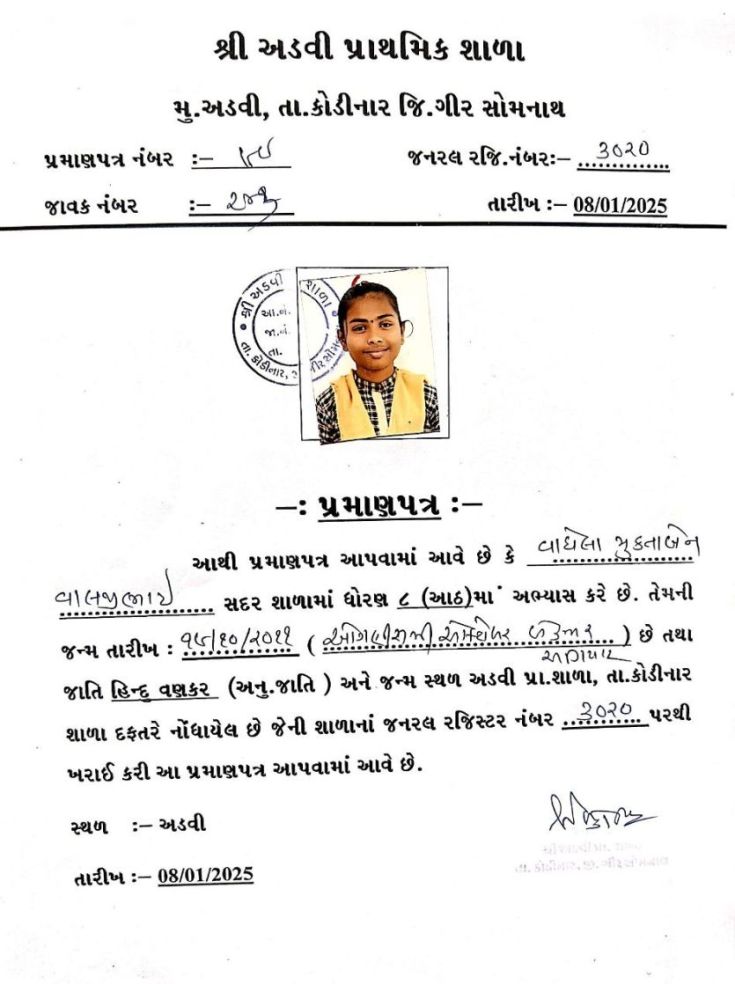 શ્રી અડવી પ્રાથમિક શાળા
મુ.અડવી, તા.કોડીનાર જિ.ગીર સોમનાથ
પ્રમાણપત્ર નંબર :–
જનરલ રજિ.નંબરઃ– 3020
જાવક નંબર :–
તારીખ :– 08/01/2025
શ્રી અડવી શાળા
આ.નં.
જા.નં.
તા.
તા. કોડીનાર,
–: પ્રમાણપત્ર :–
આથી પ્રમાણપત્ર આપવામાં આવે છે કે વાઘેલા મુકતાબેન
વાલજીભાઈ સદર શાળામાં ધોરણ ૮ (આઠ)માં અભ્યાસ કરે છે. તેમની
જન્મ તારીખ : ૧૫/૧૦/૨૦૧૧ ( ઓગણીસમી ઓક્ટોબર બે હજાર ) છે તથા
અગિયાર
જાતિ હિન્દુ વણકર (અનુ.જાતિ ) અને જન્મ સ્થળ અડવી પ્રા.શાળા, તા.કોડીનાર
શાળા દફતરે નોંધાયેલ છે જેની શાળાનાં જનરલ રજિસ્ટર નંબર 3020 પરથી
ખરાઈ કરી આ પ્રમાણપત્ર આપવામાં આવે છે.
સ્થળ :– અડવી
તા. કોડીનાર, જી. ગીર સોમનાથ
તારીખ :– 08/01/2025